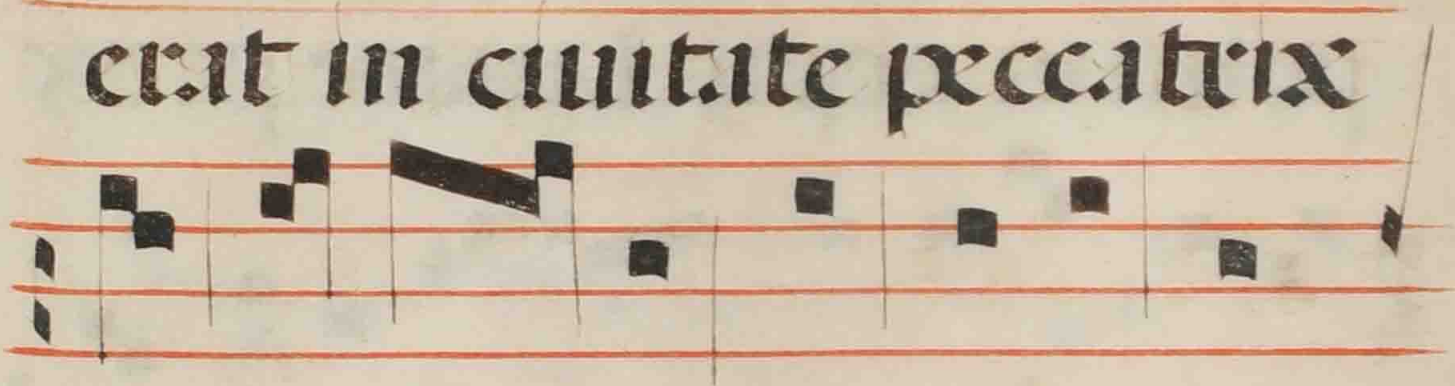 erat in ciuitate peccatrix